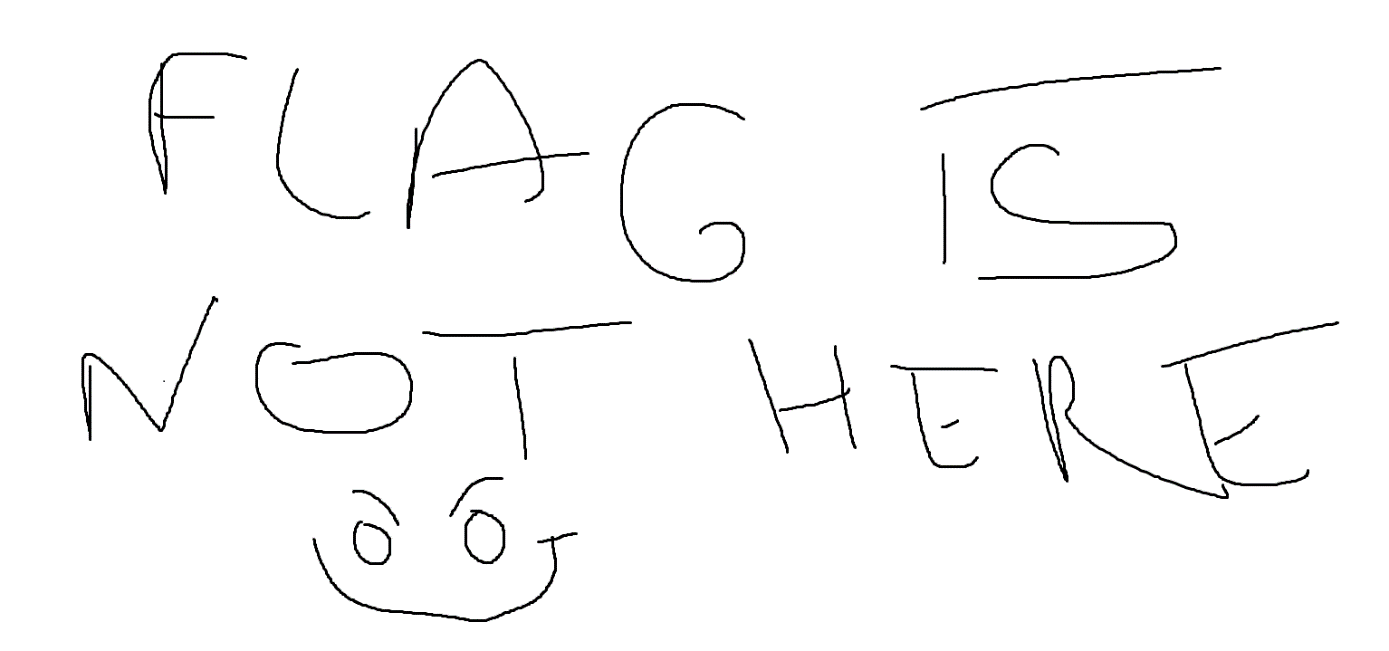 FLAG IS
NOT HERE